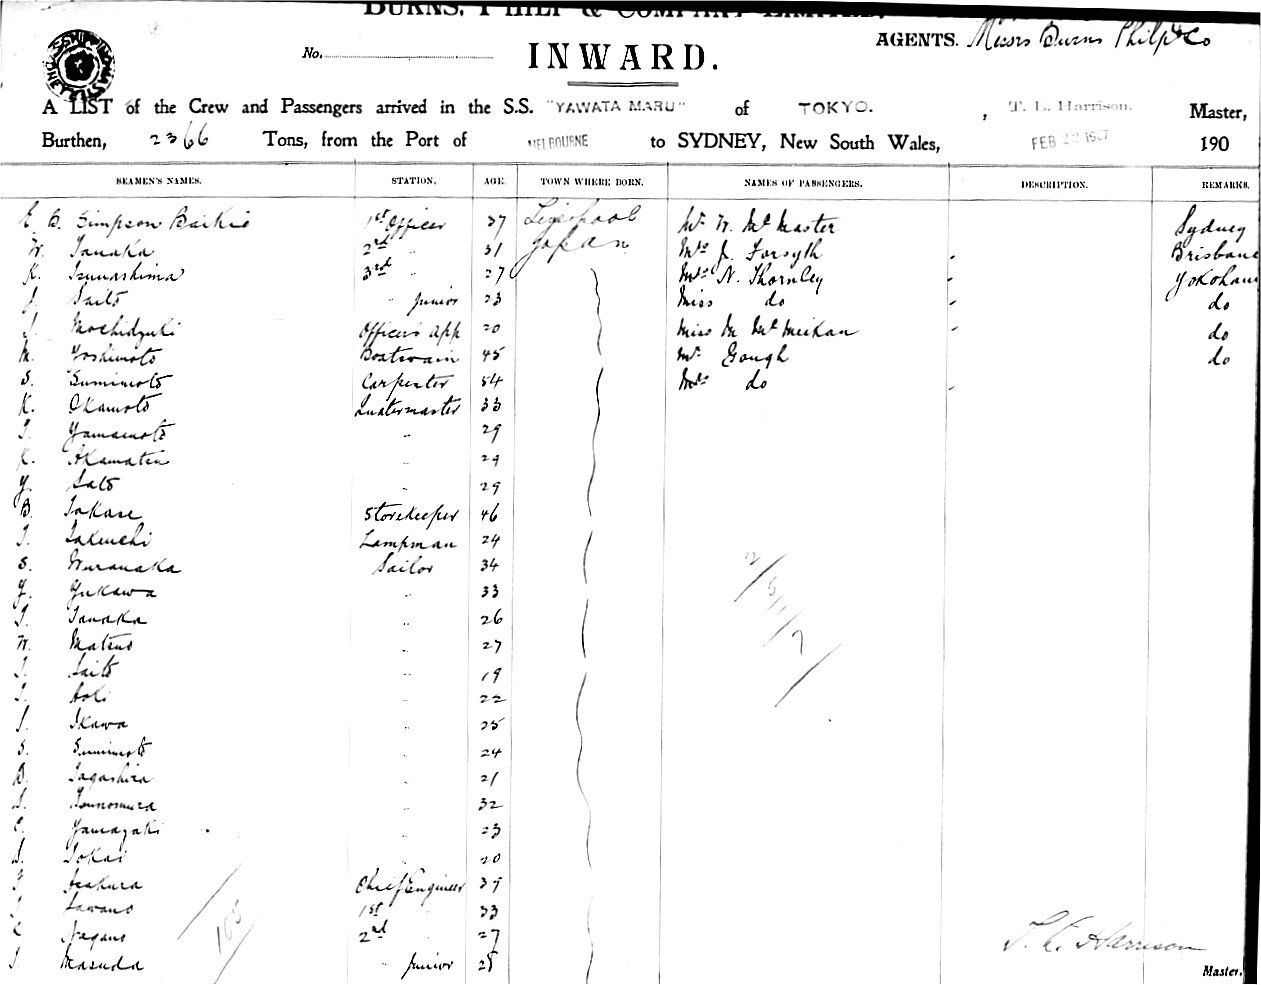 BURNS, PHILP & COMPANY LIMITED.
AGENTS. Messrs Burns Philp & Co
No.
INWARD.
A LIST of the Crew and Passengers arrived in the S.S. "YAWATA MARU" of TOKYO. , T. L. Harrison. Master,
Burthen, 2366 Tons, from the Port of MELBOURNE to SYDNEY, New South Wales, FEB 1907 190
SEAMEN'S NAMES. STATION. AGE. TOWN WHERE BORN. NAMES OF PASSENGERS. DESCRIPTION. REMARKS.
E. B. Simpson Baikie 1st Officer 37 Liverpool Mr. W. McMaster Sydney
W. Tanaka 2nd " 31 Japan Mrs J. Forsyth Brisbane
K. Tsunashima 3rd " 27 Mrs N. Thornley Yokohama
J. Saito " junior 23 Miss do do
J. Mochidzuki Officer's App 20 Miss M McMeikan do
M. Yoshimoto Boatswain 45 Mr. Gough do
S. Sumimoto Carpenter 54 Mrs do
K. Okamoto Quatermaster 33
T. Yamamoto " 29
K. Akamatsu " 29
Y. Sato " 29
B. Takase Storekeeper 46
T. Takeuchi Lampman 24
S. Muranaka Sailor 34
Y. Yukawa " 33
T. Tanaka " 26
W. Matsuo " 27
T. Saito " 19
T. Aoki " 22
J. Ikawa " 25
S. Sumimoto " 24
D. Tagashira " 21
S. Tsunomura " 32
Yamazaki " 23
S. Sokai " 20
Asakura Chief Engineer 39
Sawano 1st " 33
Nagano 2nd " 27
T. Masuda " junior 28
103
T. L. Harrison
Master.